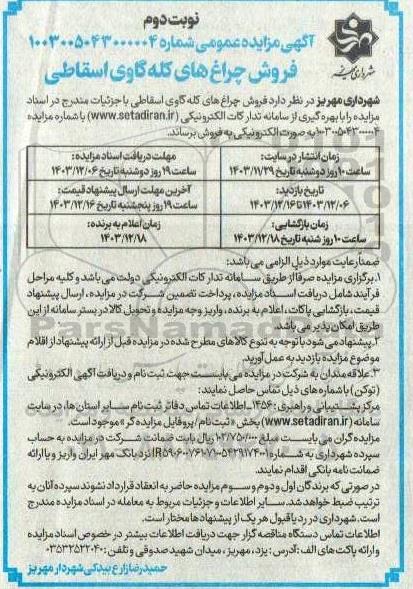 نوبت دوم
آگهی مزایده عمومی شماره ۱۰۰۳۰۰۵۰۴۳۰۰۰۰۰۴
فروش چراغ های کله گاوی اسقاطی
شهرداری مهریز
شهرداری مهریز در نظر دارد فروش چراغ های کله گاوی اسقاطی با جزئیات مندرج در اسناد
مزایده را با بهره گیری از سامانه تدارکات الکترونیکی (www.setadiran.ir) با شماره مزایده
۱۰۰۳۰۰۵۰۴۳۰۰۰۰۰۴ به صورت الکترونیکی به فروش برساند.
زمان انتشار در سایت:
ساعت ۱۰ روز دوشنبه تاریخ ۱۴۰۳/۱۱/۲۹
مهلت دریافت اسناد مزایده:
ساعت ۱۹ روز دوشنبه تاریخ ۱۴۰۳/۱۲/۰۶
تاریخ بازدید:
۱۴۰۳/۱۲/۰۶ تا ۱۴۰۳/۱۲/۱۶
آخرین مهلت ارسال پیشنهاد قیمت:
ساعت ۱۹ روز پنجشنبه تاریخ ۱۴۰۳/۱۲/۱۶
زمان بازگشایی:
ساعت ۱۰ روز شنبه تاریخ ۱۴۰۳/۱۲/۱۸
زمان اعلام به برنده:
۱۴۰۳/۱۲/۱۸
ضمنا رعایت موارد ذیل الزامی می باشد:
۱. برگزاری مزایده صرفا از طریق سامانه تدارکات الکترونیکی دولت می باشد و کلیه مراحل
فرآیند شامل دریافت اسناد مزایده، پرداخت تضمین شرکت در مزایده، ارسال پیشنهاد
قیمت، بازگشایی پاکات، اعلام به برنده، واریز وجه مزایده و تحویل کالا در بستر سامانه از این
طریق امکان پذیر می باشد.
۲. پیشنهاد می شود با توجه به تنوع کالاهای مطرح شده در مزایده قبل از ارائه پیشنهاد از اقلام
موضوع مزایده بازدید به عمل آورید.
۳. علاقه مندان به شرکت در مزایده می بایست جهت ثبت نام و دریافت آگهی الکترونیکی
(توکن) با شماره های ذیل تماس حاصل نمایند:
مرکز پشتیبانی و راهبری: ۱۴۵۶ - اطلاعات تماس دفاتر ثبت نام سایر استان ها، در سایت
سامانه (www.setadiran.ir) بخش «ثبت نام / پروفایل مزایده گر» موجود است.
مزایده گران می بایست مبلغ ۱۰۲/۷۵۰/۰۰۰ ریال بابت ضمانت شرکت در مزایده به حساب
سپرده شهرداری به شماره نزد بانک مهر ایران واریز و یا ارائه
ضمانت نامه بانکی اقدام نمایند.
در صورتی که برندگان اول و دوم و سوم مزایده حاضر به انعقاد قرارداد نشوند سپرده آنان به
ترتیب ضبط خواهد شد. سایر اطلاعات و جزئیات مربوط به معامله در اسناد مزایده مندرج
است. شهرداری در رد یا قبول هر یک از پیشنهادها مختار است.
اطلاعات تماس دستگاه مناقصه گزار جهت دریافت اطلاعات بیشتر در خصوص اسناد مزایده
و ارائه پاکت های الف: آدرس: یزد، مهریز، میدان شهید صدوقی و تلفن: ۰۳۵۳۲۵۲۲۰۴۰
حمیدرضا زارع بیدکی شهردار مهریز